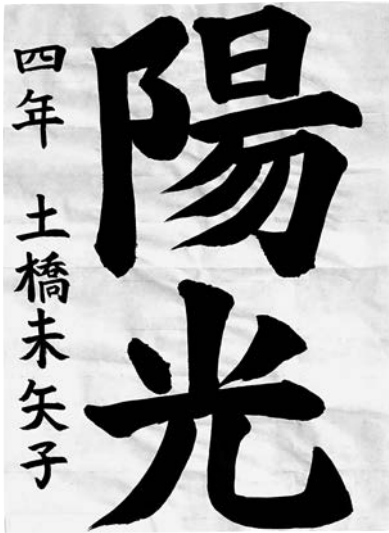 陽光
四年 土橋未矢子